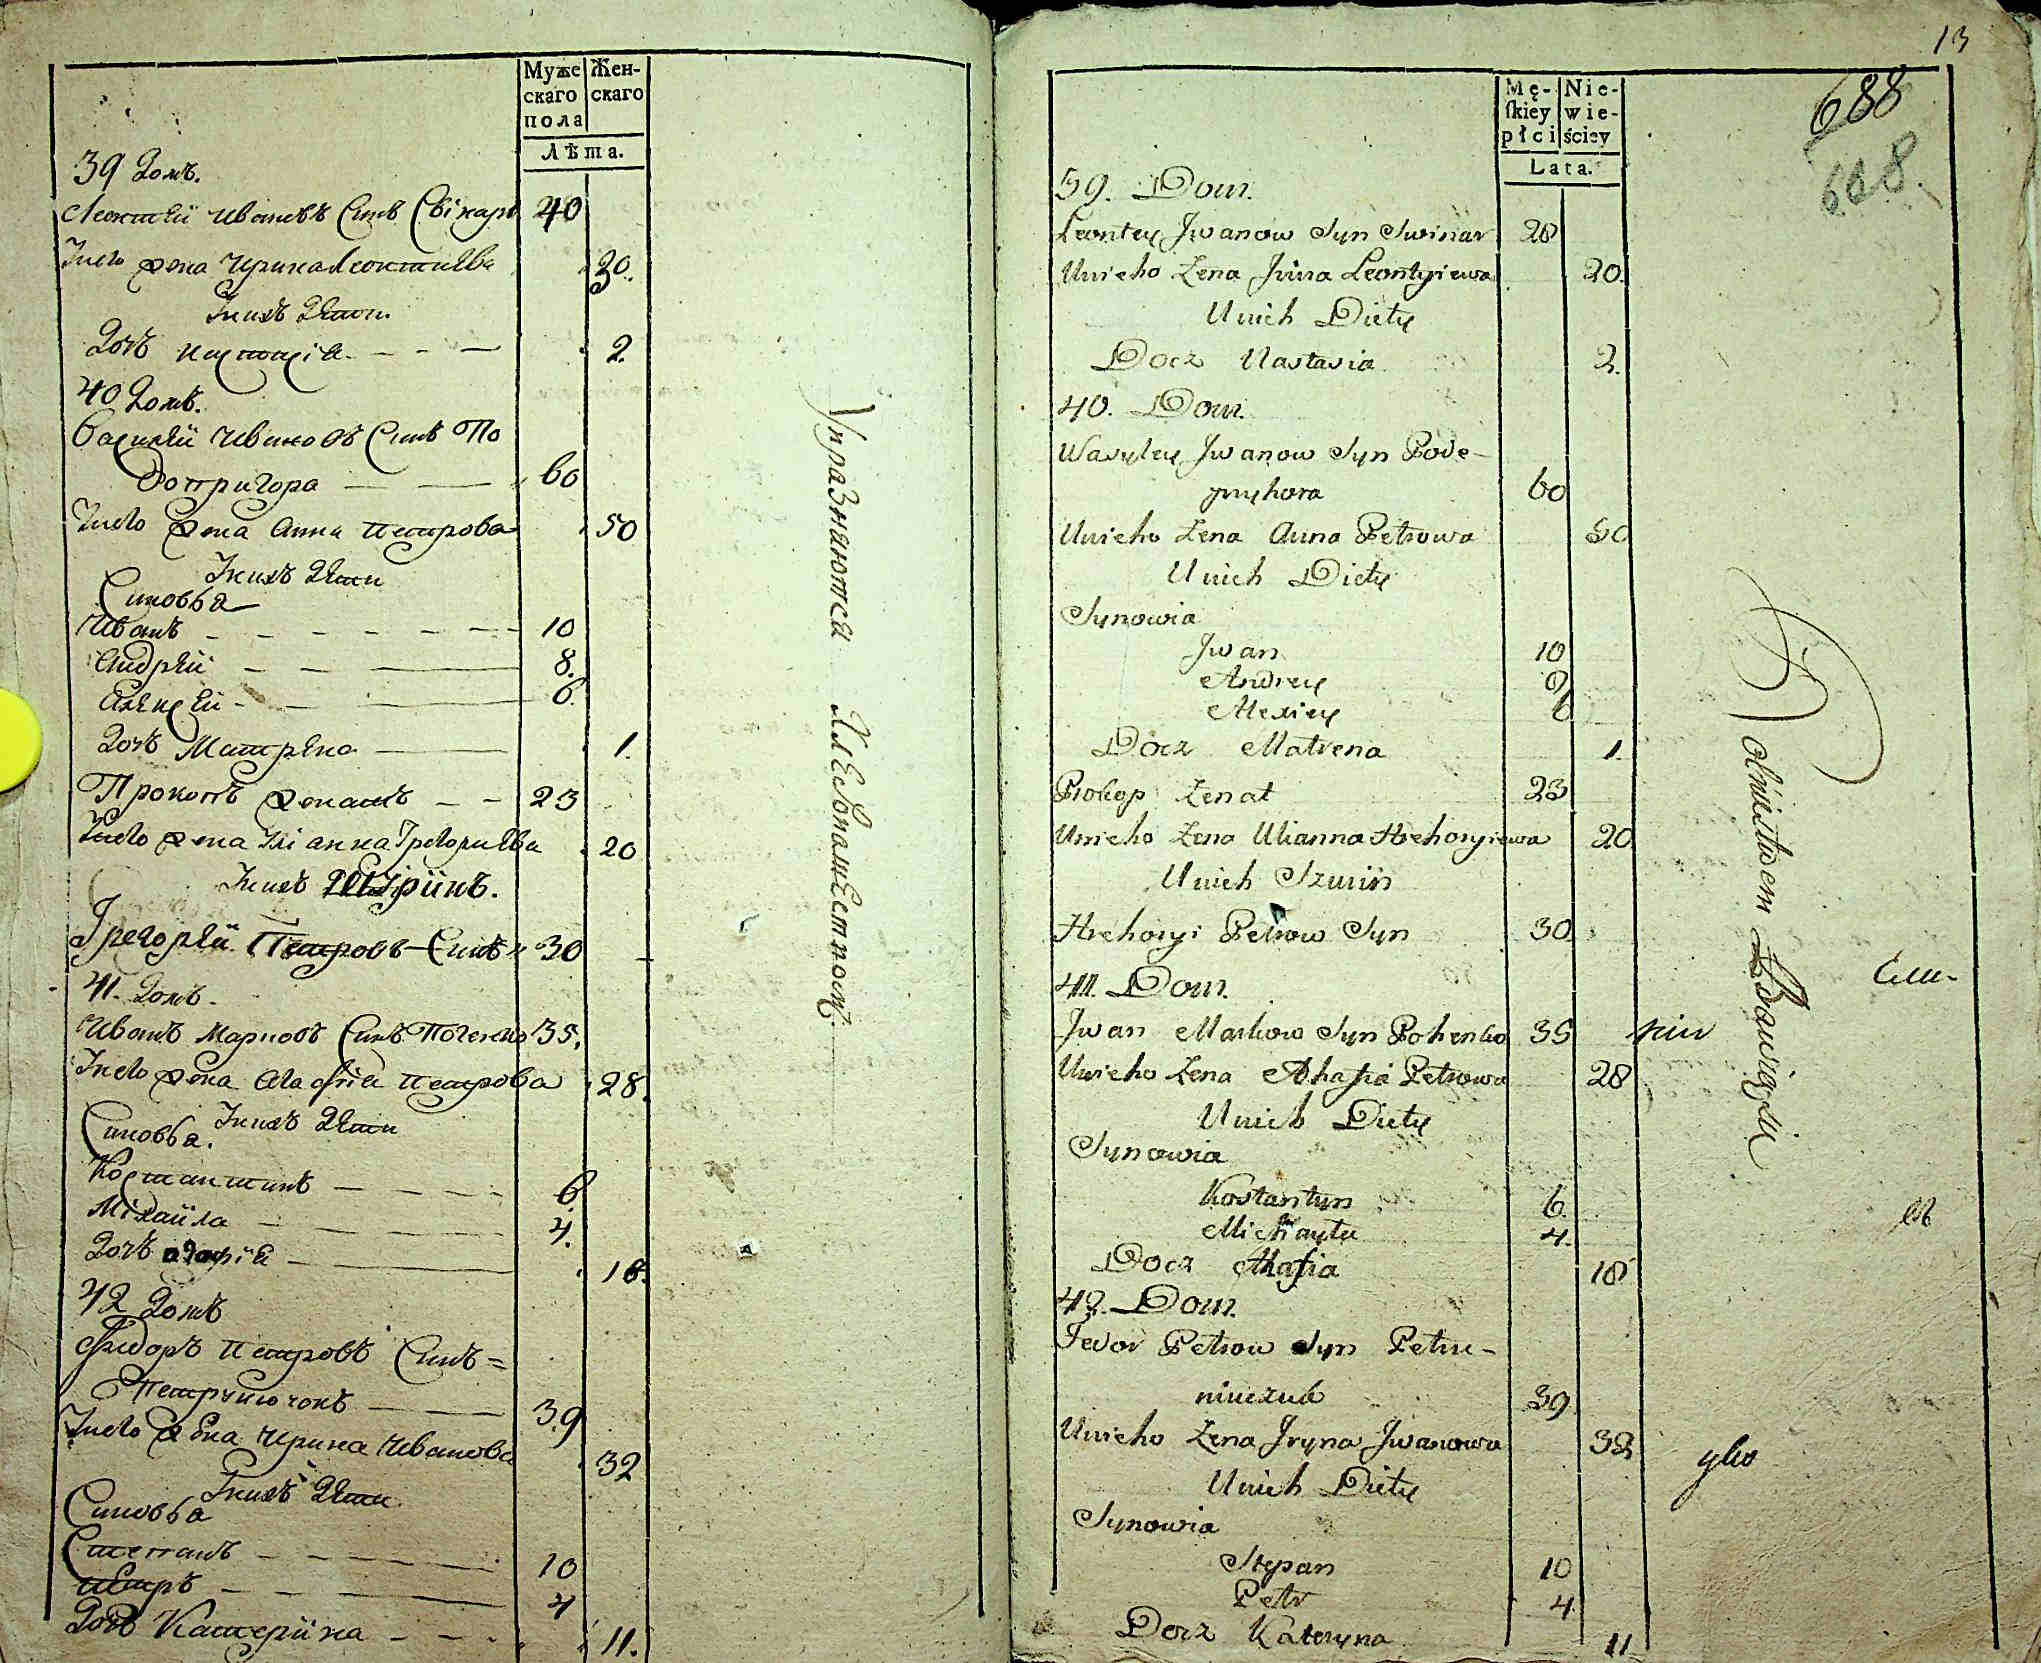 Муже
скаго
пола
Жен-
скаго
Лѣта.
39 Домъ.
Леонтѣй Ивановъ Синъ Свінаръ 40
Унего Жена Ирина Леонтиѣва 30.
Унихъ Дѣти.
Дочъ Настасіа - - - 2
40 Домъ.
Василѣй Ивановъ Синъ По
допригора 60
Унего Жена Анна Петрова 50
Унихъ Дѣти
Синовьа
Иванъ - - - - - 10
Андрѣй - - 8.
Алексѣй - - 6.
Дочъ Матрѣна 1.
Прокопъ Женатъ - - 23
Унего Жена Улianна Грегориѣва 20
Унихъ
Грегорѣй Петровъ Синъ 30
41. Домъ.
Иванъ Марковъ Синъ Погенко 35.
Унего Жена Агафіа Петрова 28.
Унихъ Дѣти
Синовьа.
Костантинъ - - - 6
Міхайла - 4.
Дочъ 18.
42 Домъ
Фидоръ Петровъ Синъ =
Петрунючокъ 39
Унего Жена Ирина Иванова 32
Унихъ Дѣти
Синовьа
Степанъ - - - 10
Пѣтръ - - 4
Дочъ Катерiйна - - - 11.
Упразнаютса Хлебопашествомъ.
13
688
608.
Mę-
ſkiey
płci
Nie-
wie-
ściey
Lata.
39. Dom.
Leontey Jwanow Syn Swinar 20
Unieho Żena Jrina Leontyiewa 20.
Unich Diety
Docz Nastasia 2.
40. Dom.
Wasyley Jwanow Syn Pode-
pryhora 60
Unieho Żena Anna Petrowa 50
Unich Diety
Synowia
Jwan 10
Andrey 8
Alexiey 6
Docz Matrena 1.
Prokop Żenat 23
Unieho Żena Ulianna Hrehoryiewa 20
Unich Szurin
Hrehoryi Petrow Syn 30
41. Dom.
Jwan Markow Syn Pohenko 35
Unieho Żena Ahafia Petrowa 28
Unich Diety
Synowia
Kostantyn 6.
Michayła 4.
Docz Ahafia 18
42. Dom.
Fedor Petrow Syn Petru-
niuczuk 39
Unieho Żena Jryna Jwanowa 32
Unich Diety
Synowia
Stepan 10
Petr 4
Docz Kateryna 11
Rolnistwem Bawiążsię